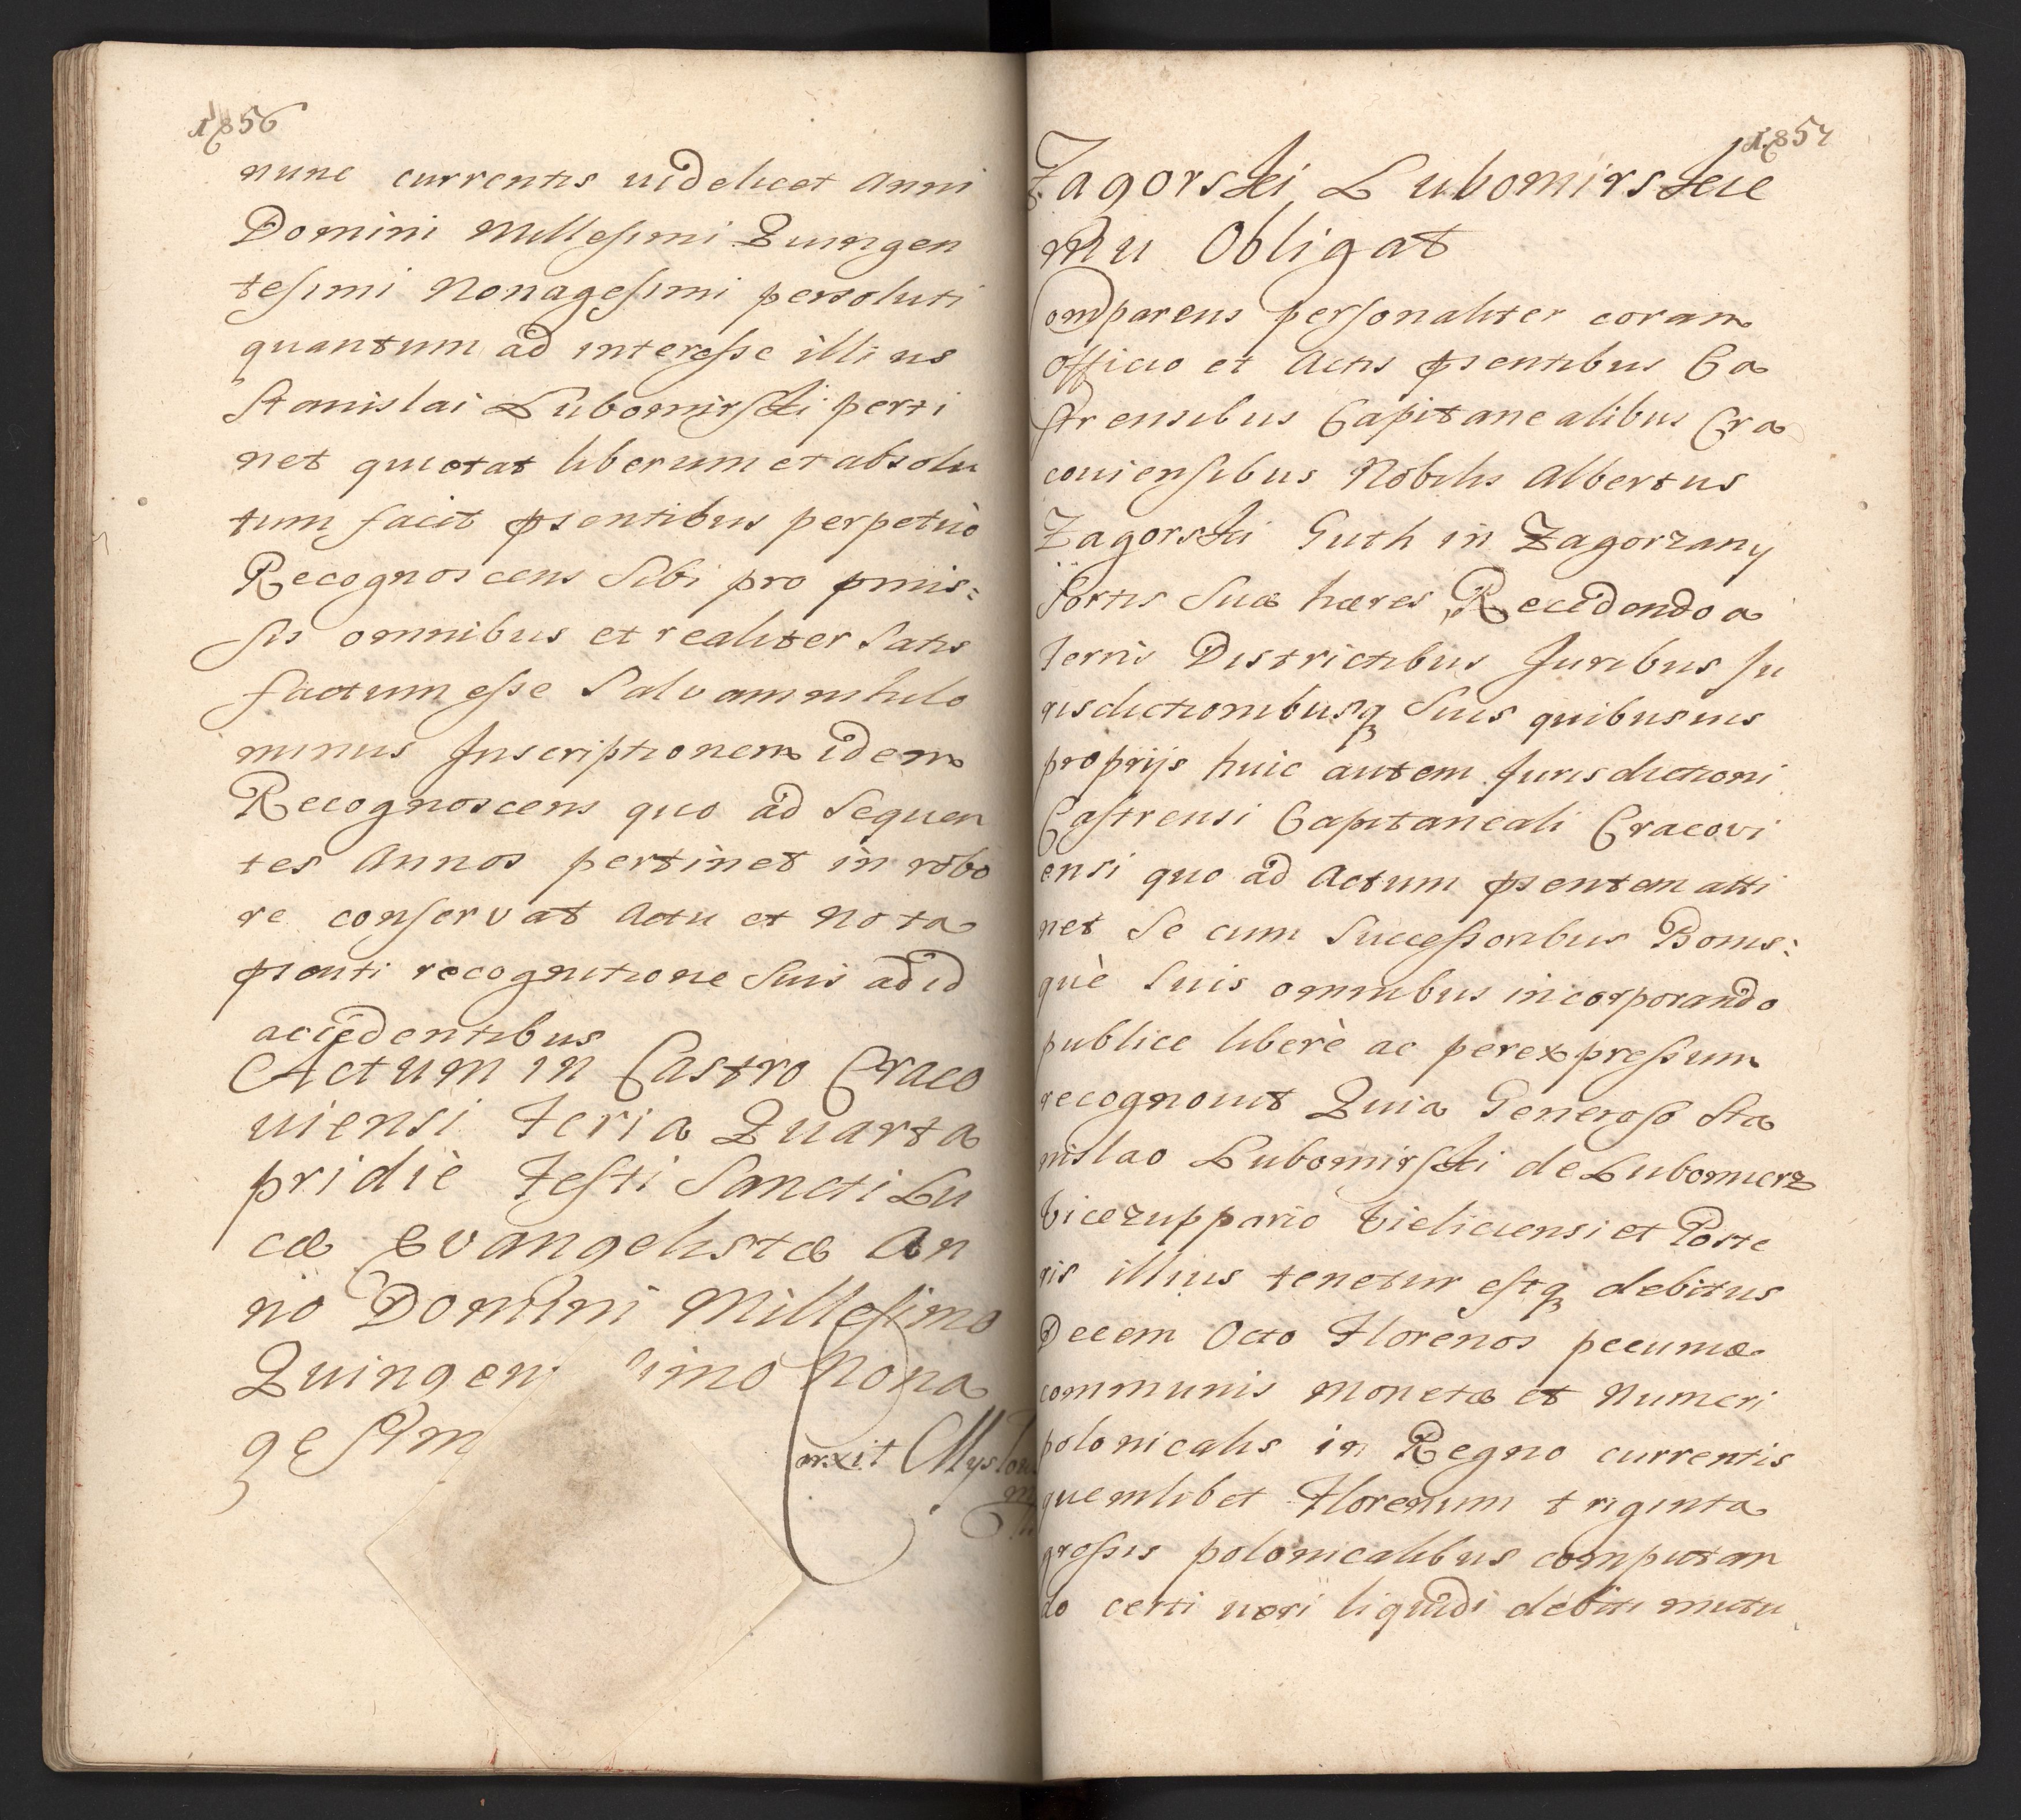 1856
nunc currentis uidelicet Anni
Domini Millesimi Quingen
tesimi Nonagesimi persoluti
quantum ad interesse illius
Stanislai Lubomirski perti
net quietat liberum et absolu
tum facit pñsentibus perpetuò
Recognoscens Sibi pro pmis:
sis omnibus et realiter Satis
factum esse Salvam nihilo
minus Inscriptionem idem
Recognoscens quo ad Sequen
tes Annos pertinet in robo
re conservat Actu et Nota
pñsenti recognitione Suis ad id
accedentibus
Actum in Castro Craco
uiensi Feria Quarta
pridiè Festi Sancti Lu
cæ Evangelistæ An
no Domini Millesimo
Quingen simo Nona
gesim
1857
Zagorski Lubomirskie
mu Obligat
Comparens personaliter coram
Officio et Actis pñsentibus Ca
strensibus Capitanealibus Cra
couiensibus Nobilis Albertus
Zagorski Guth in Zagorzany
Sortis Suæ hæres Recedendo a
Terris Districtibus Juribus Ju
risdictionibusq Suis quibusuis
proprijs huic autem Jurisdictioni
Castrensi Capitaneali Cracovi
ensi quo ad Actum pñsentem atti
net Se cum Successoribus Bonis:
què Suis omnibus incorporando
publice liberè ac per expressum
recognouit Quia Generoso Sta
nislao Lubomirski de Lubomierz
Vicezuppario Vieliciensi et Poste
ris illius tenetur estq debitus
Decem Octo Florenos pecuniæ
communis monetæ et Numeri
polonicalis in Regno currentis
quemlibet Florenum triginta
grossis polonicalibus computan
do certi ueri liquidi debiti mutu